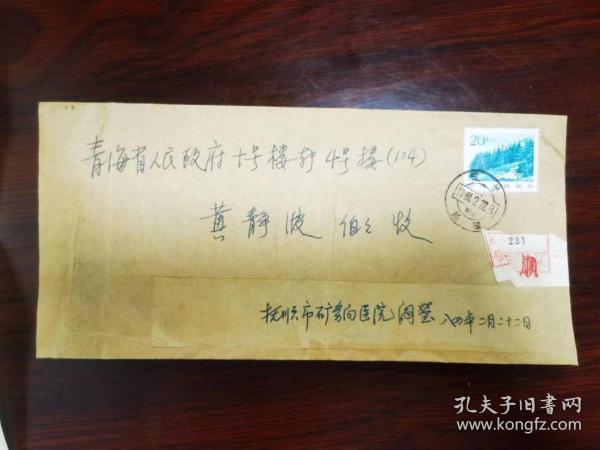 青海省人民政府七号楼新4号楼(104)
黄静波 伯伯 收
抚顺市矿务局医院 阎莹 八四年二月二十二日
20
231
顺
孔夫子旧书网
www.kongfz.com